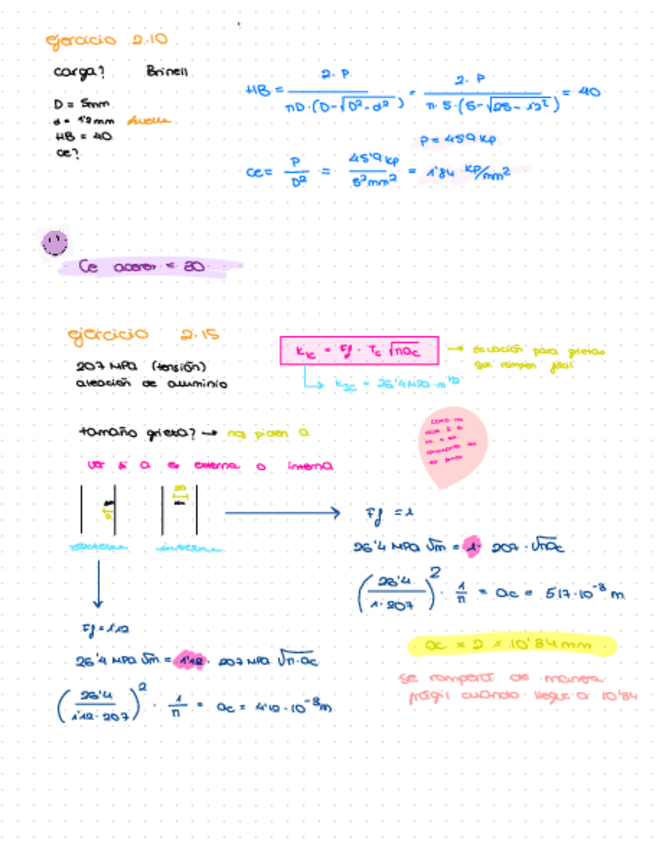 ejercicio 2.10
carga? Brinell
D = 5mm
d = 1'2mm huella
HB = 40
ce?
HB = 2·P / πD·(D-√D²-d²) = 2·P / π·5·(5-√25-1'2²) = 40
P = 45'9 Kp
ce = P / D² = 45'9 Kp / 5² mm² = 1'84 KP/mm²
Ce aceros = 30
ejercicio 2.15
207 MPa (tensión)
aleación de aluminio
K_IC = Ff · Tc √πac → ecuación para grietas
que rompen fácil
K_IC = 26'4 MPa·m^1/2
tamaño grieta? → nos piden a
ver si a es externa o interna
externa interna
Ff = 1
26'4 MPa √m = 1· 207 · √πac
(26'4 / 1·207)² · 1/π = ac = 5'17·10⁻³ m
ac × 2 = 10'34mm
se romperá de manera
frágil cuando llegue a 10'34
Ff = 1'12
26'4 MPa √m = 1'12 · 207 MPa √π·ac
(26'4 / 1'12·207)² · 1/π = ac = 4'12·10⁻³m